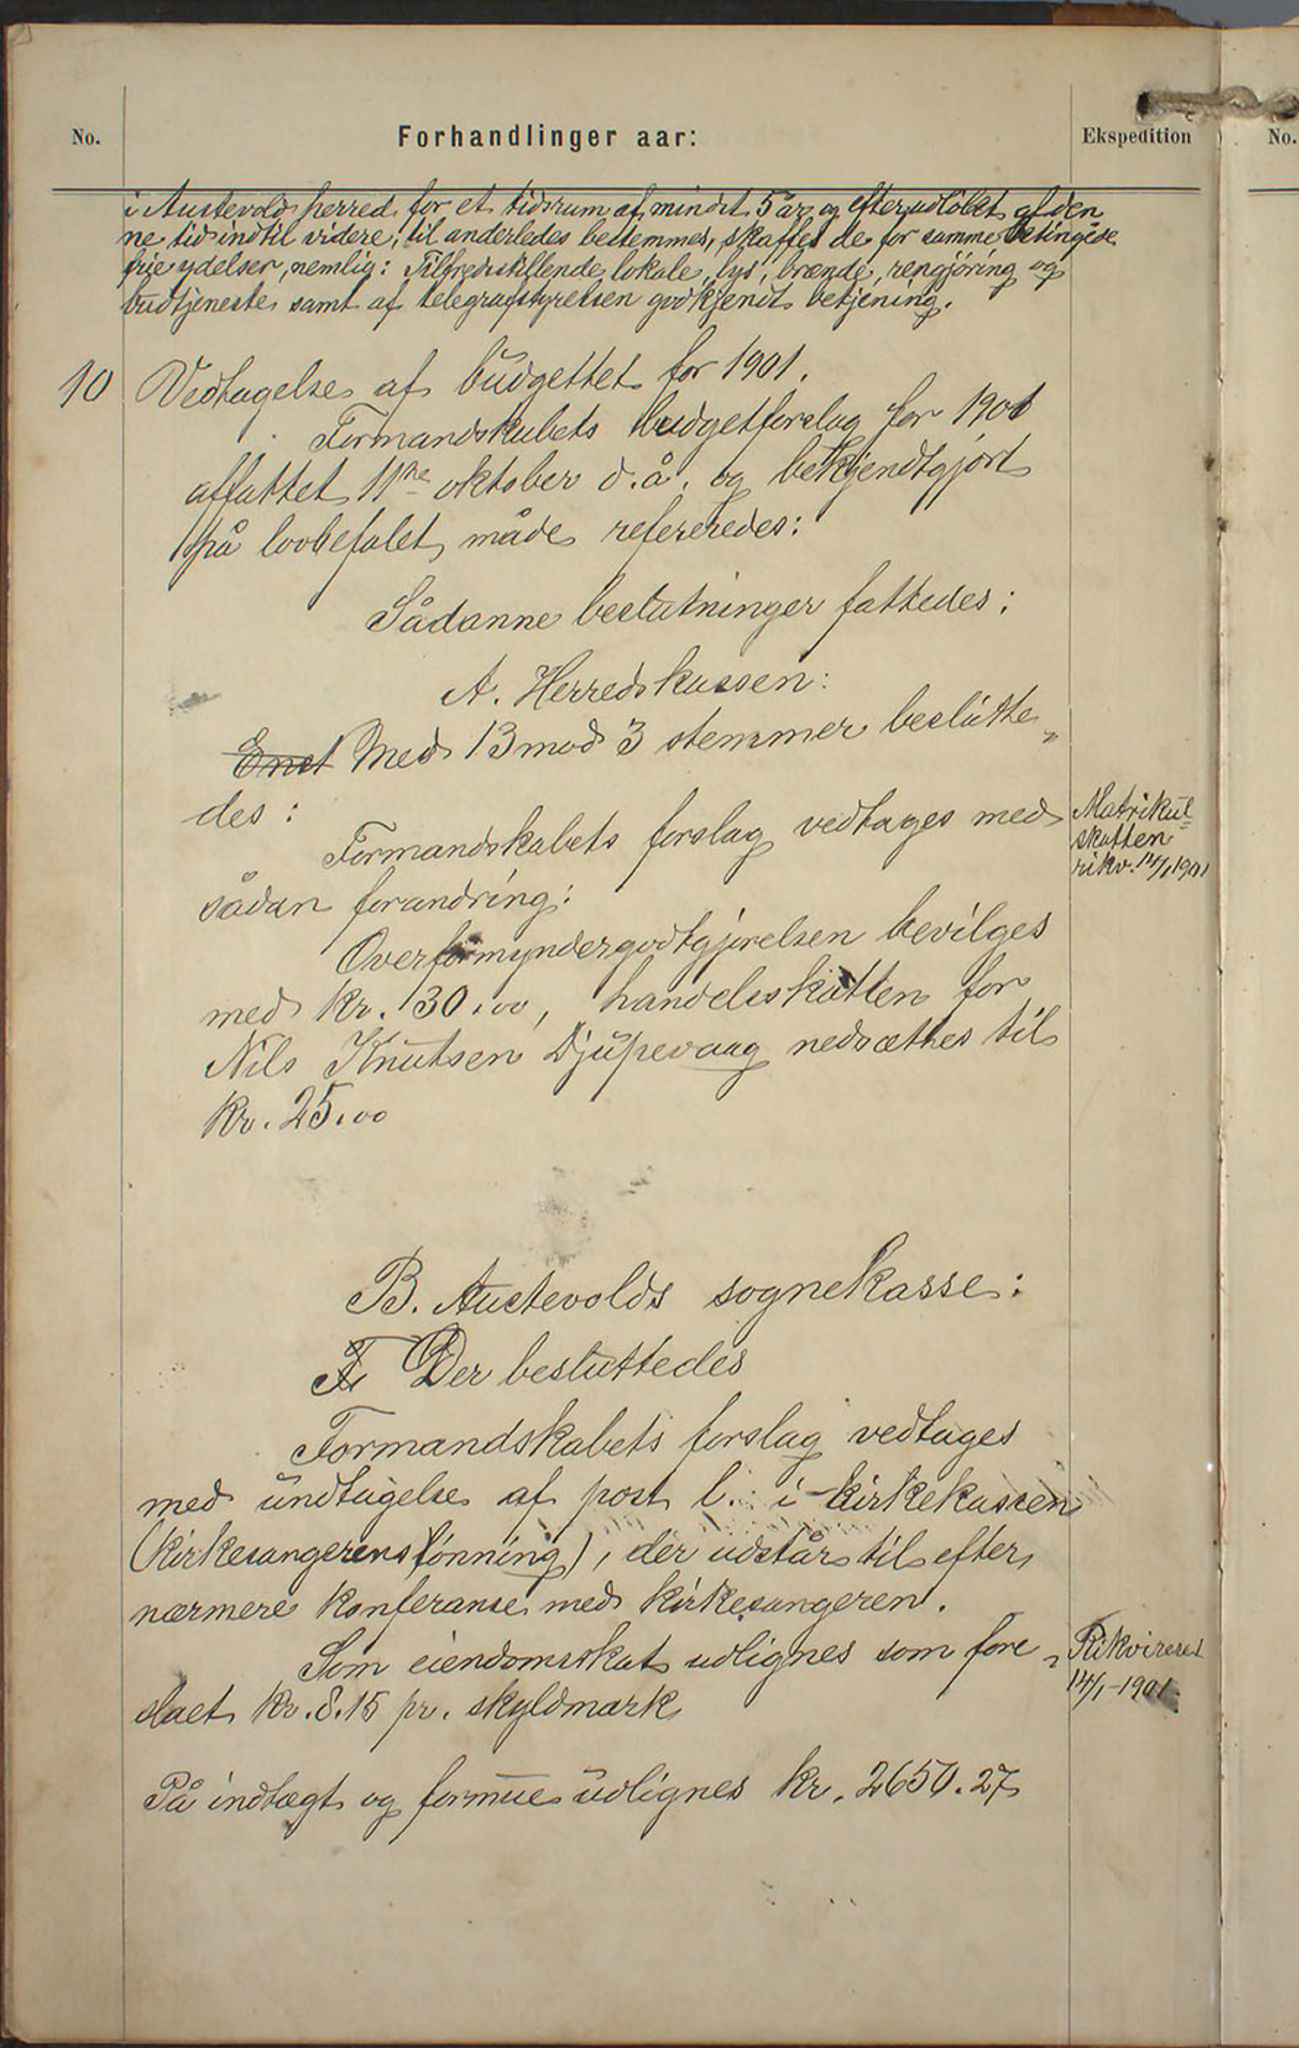 No.
Forhandlinger aar:
Ekspedition
No.
i Austevold herred for et tidsrum af mindst 5 år og efter udløbet af den
ne tid indtil videre, til anderledes bestemmes, skaffes de for samme betingede
frie ydelser, nemlig: Tilfredsstillende lokale, lys, brænde, rengjøring og
budtjeneste samt af telegrafstyrelsen godkjendt betjening.
10 Vedtagelse af budgettet for 1901.
Formandskabets budgetforslag for 1901
affattet 11te oktober d.å. og bekjendtgjort
på lovbefalet måde refereredes:
Sådanne beslutninger fattedes:
A. Herredskassen:
Enst Med 13 mod 3 stemmer beslutte„
des:
Formandskabets forslag vedtages med
sådan forandring:
Matrikul=
skatten
rikv. 14/1 1901
Overformyndergodtgjørelsen bevilges
med kr. 30.00, handelsskatten for
Nils Knutsen Djupevaag nedsættes til
kr. 25.00
B. Austevolds sognekasse:
F Der besluttedes
Formandskabets forslag vedtages
med undtagelse af post l. i kirkekassen
(kirkesangerens lønning), der udstår til efter
nærmere konferanse med kirkesangeren.
Som eiendomsskat udlignes som fore„
slaet kr. 8.15 pr. skyldmark
Rikvireret
14/1-1901
På indtægt og formue udlignes kr. 2650.27